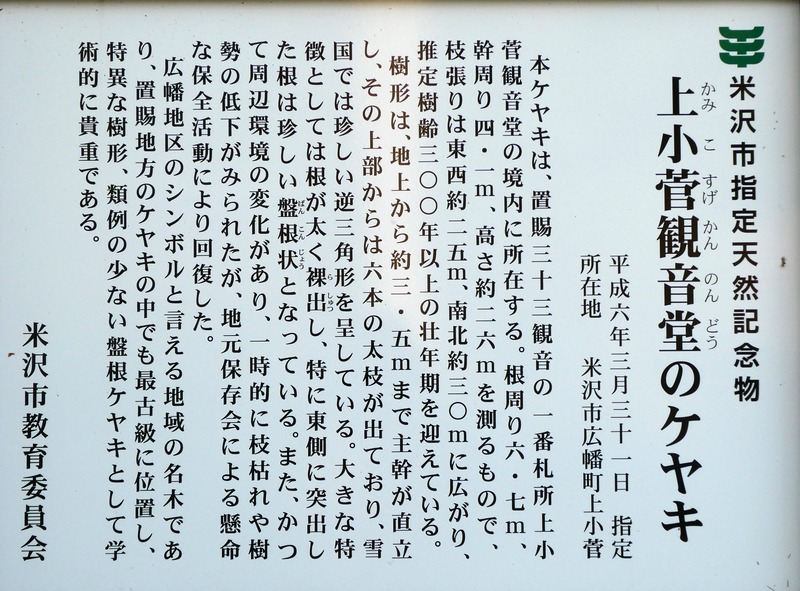 米沢市指定天然記念物
上小菅観音堂のケヤキ
かみ こ すげ かん のん どう
平成六年三月三十一日 指定
所在地 米沢市広幡町上小菅
本ケヤキは、置賜三十三観音の一番札所上小
菅観音堂の境内に所在する。根周り六・七m、
幹周り四・一m、高さ約二六mを測るもので、
枝張りは東西約二五m、南北約三〇mに広がり、
推定樹齢三〇〇年以上の壮年期を迎えている。
樹形は、地上から約三・五mまで主幹が直立
し、その上部からは六本の太枝が出ており、雪
国では珍しい逆三角形を呈している。大きな特
徴としては根が太く裸出し、特に東側に突出し
ら しゅつ
た根は珍しい盤根状となっている。また、かつ
ばん こん じょう
て周辺環境の変化があり、一時的に枝枯れや樹
勢の低下がみられたが、地元保存会による懸命
な保全活動により回復した。
広幡地区のシンボルと言える地域の名木であ
り、置賜地方のケヤキの中でも最古級に位置し、
特異な樹形、類例の少ない盤根ケヤキとして学
術的に貴重である。
米沢市教育委員会